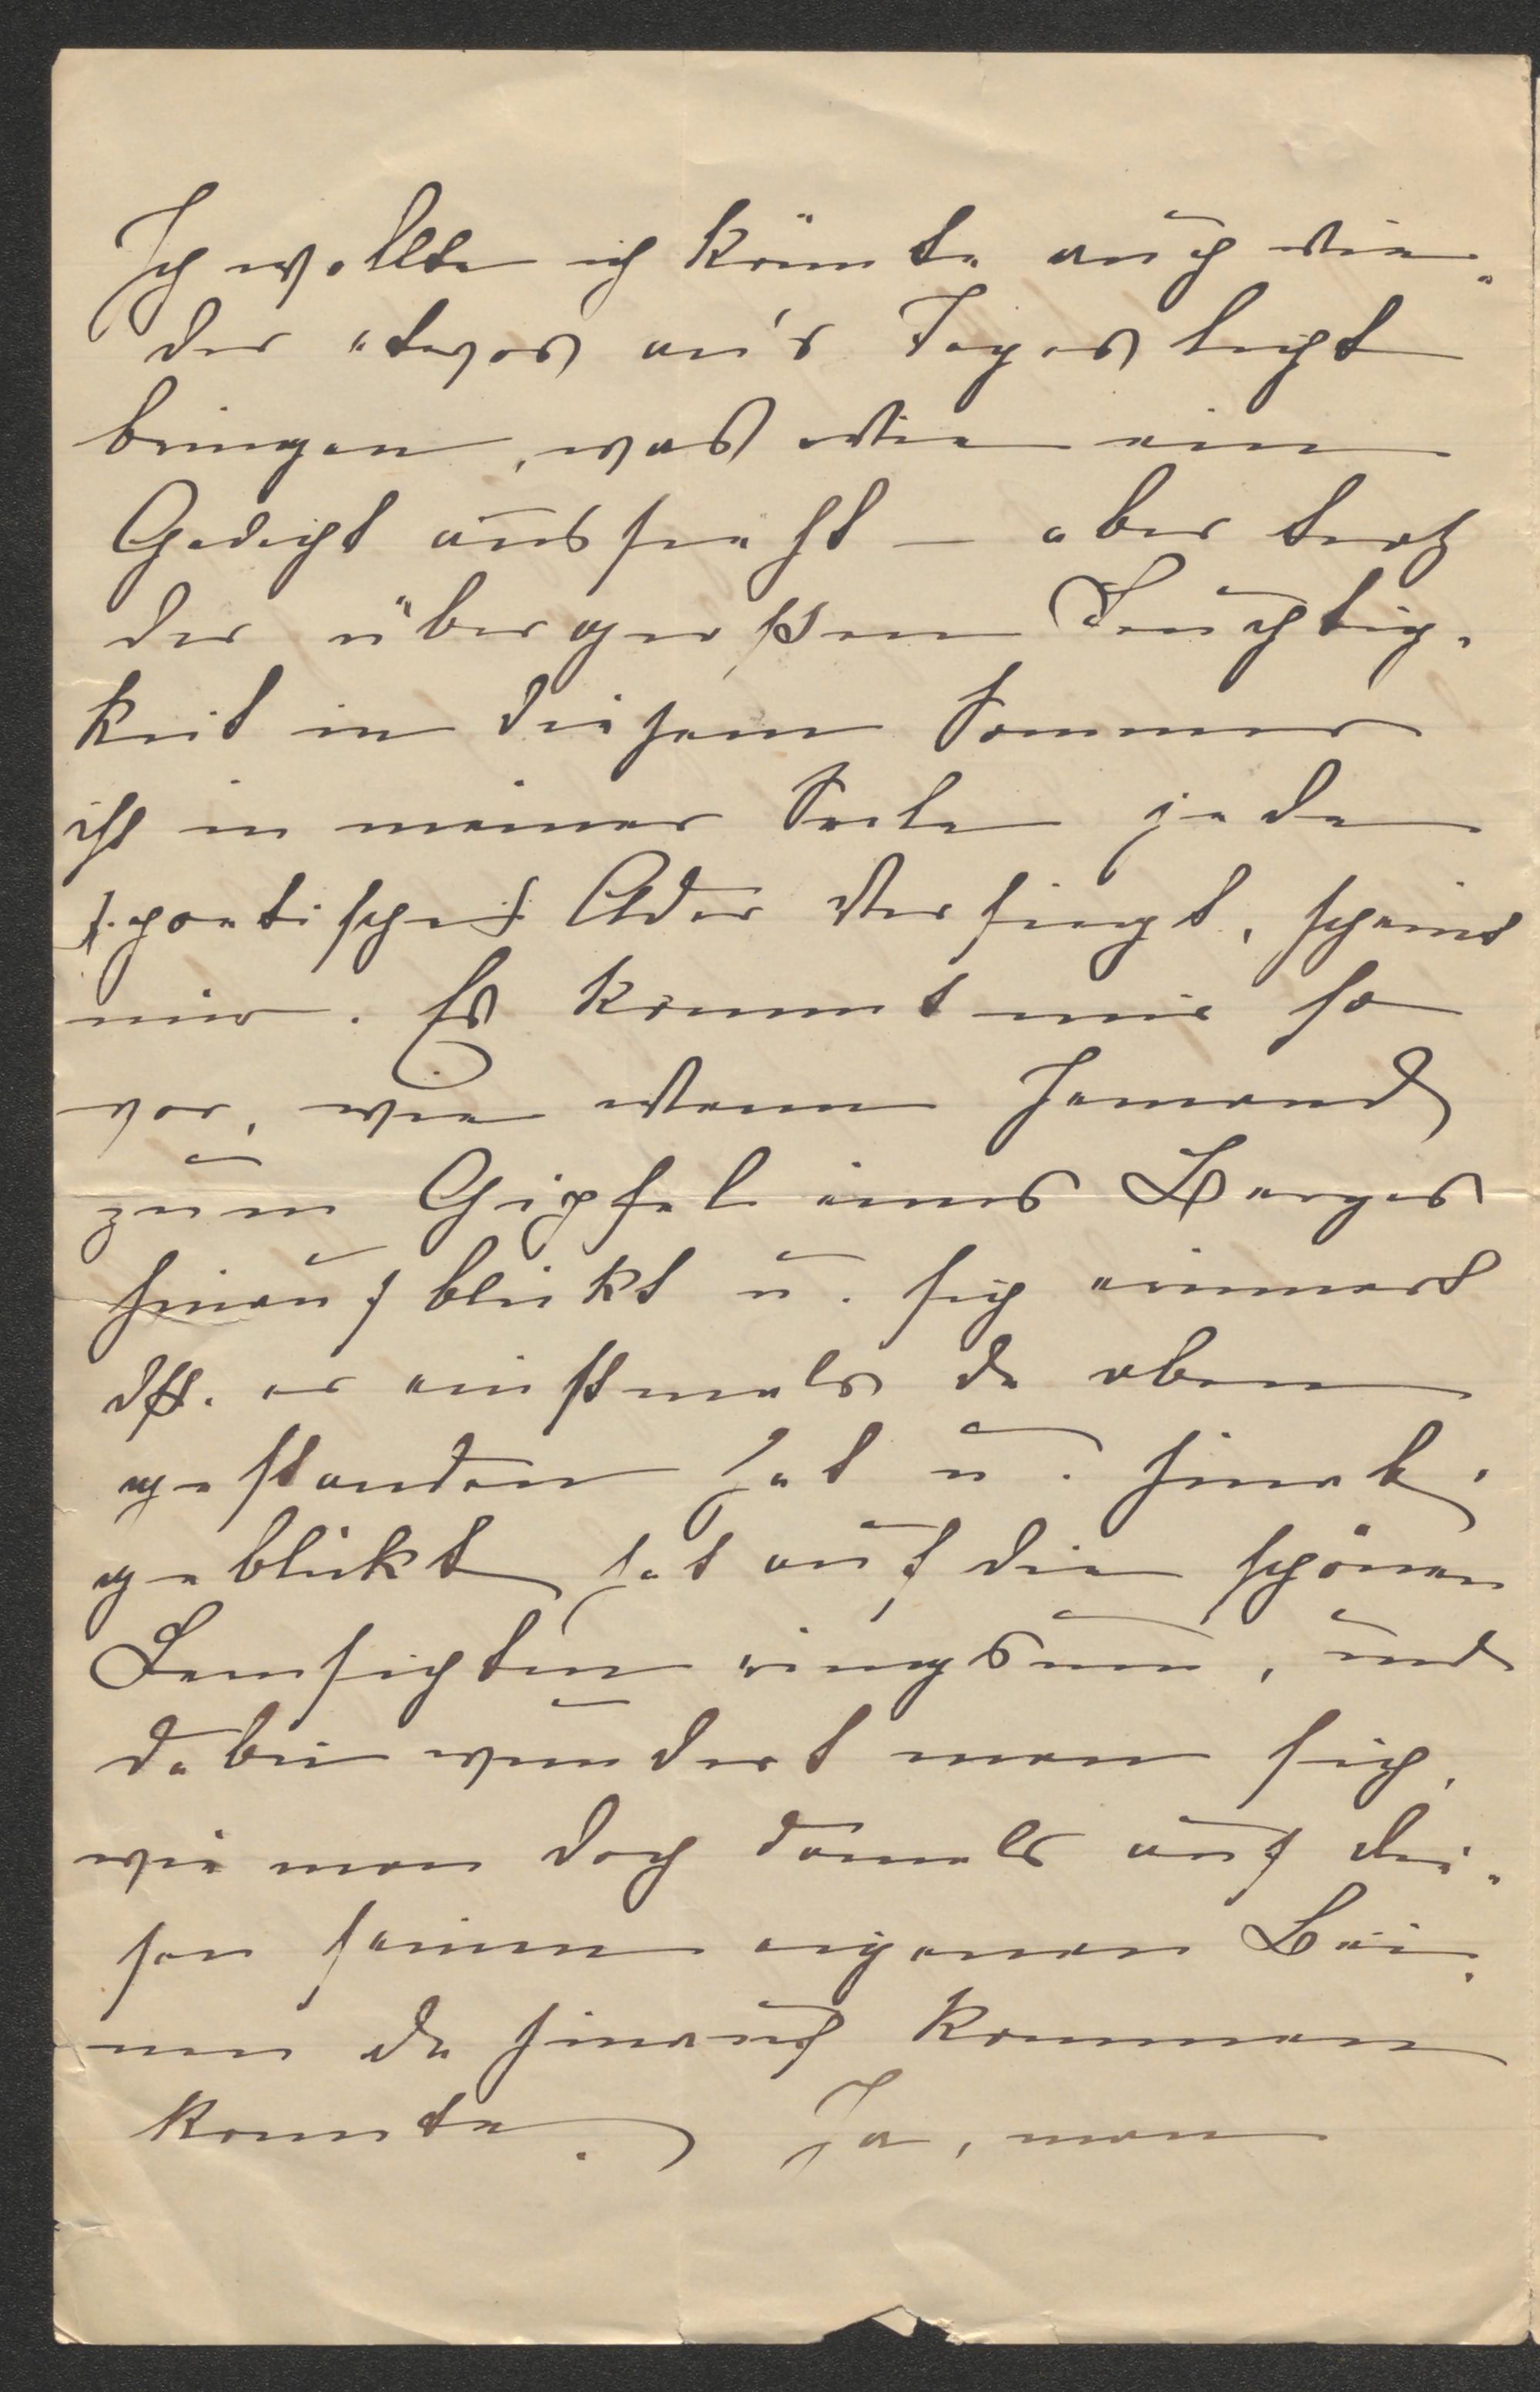 Ich wollte ich könnte auch wie-
der etwas an's Tageslicht
bringen, was wie ein
Gedicht aussieht – aber trotz
der übergroßen Feuchtig-
keit in diesem Sommer
ist in meiner Seele jede
poetische Ader versiegt, scheint
mir. Es kommt mir so
vor, wie wenn Jemand
zum Gipfel eines Berges
hinauf blickt u. sich erinnert
dß. er einstmals da oben
gestanden hat u. hinab-
geblickt hat auf die schönen
Fernsichten ringsum, und
dabei wundert man sich,
wie man doch damals auf die-
sen seinen eigenen Bei-
nen da hinauf kommen
konnte. Ja, man